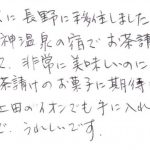 に長野に移住しました
神温泉の宿でお茶請
て、非常に美味しいのに
茶請けのお菓子に期待
上田のイオンでも手に入れ
で、うれしいです。